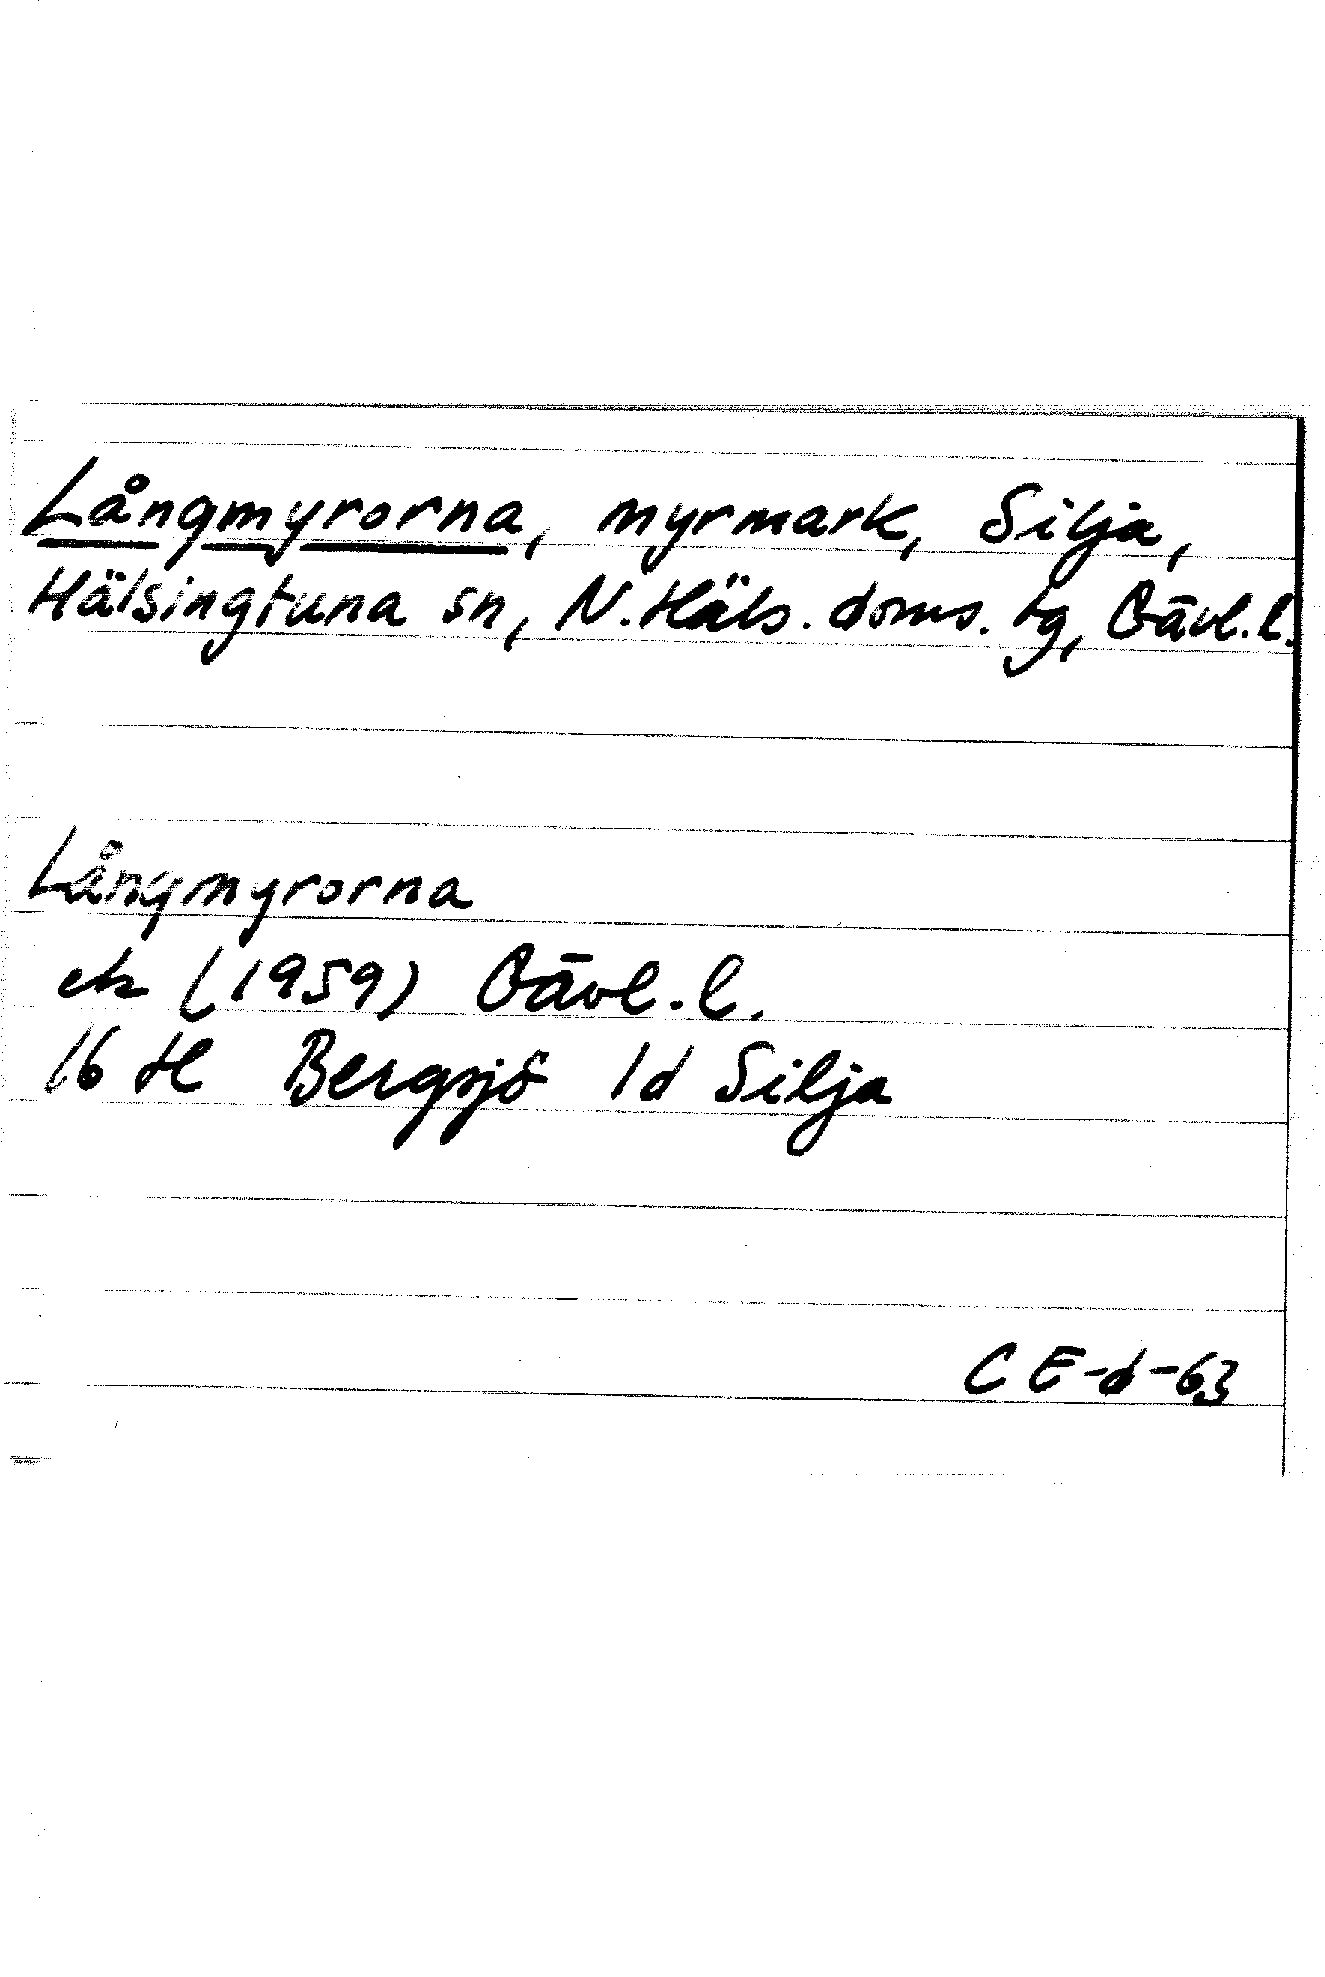 Långmyrorna, myrmark, Silja,
Hälsingtuna sn, N. Häls. doms. tg, Gävl. l.
Långmyrorna
ek (1959) Gävl. l.
16 H Bergsjö 1d Silja
C E-d-63